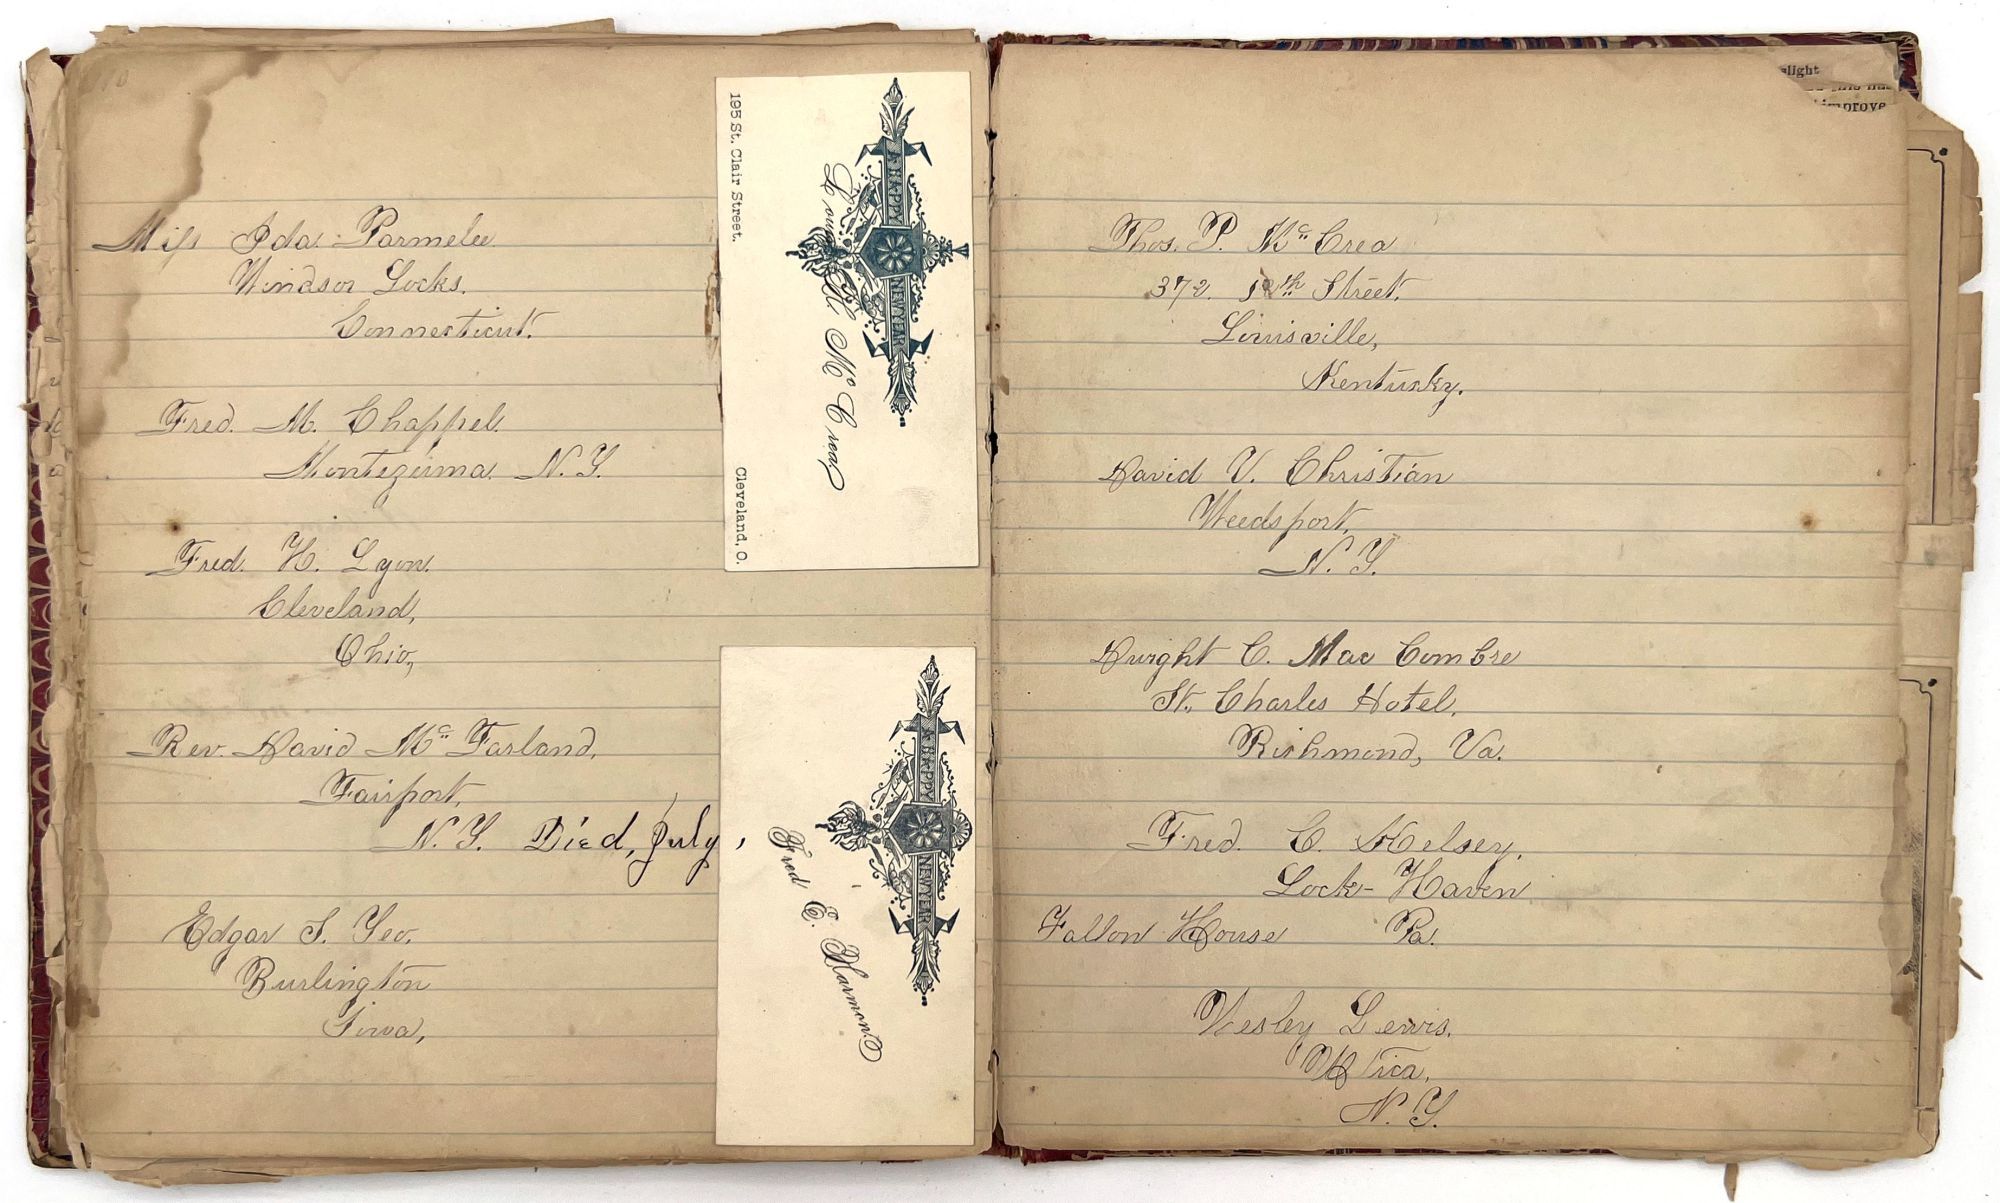 Miss Ida Parmelee
Windsor Locks.
Connecticut.
Fred. M. Chappel.
Montezuma N.Y.
Fred. H. Lyon.
Cleveland,
Ohio,
Rev. David Mc Farland,
Fairport,
N.Y. Died, July,
Edgar S. Yeo.
Burlington
Iowa,
A HAPPY NEW YER
Mc Crea
195 St. Clair Street.
Cleveland, O.
A HAPPY NEW YER
Fred E. Harmon
Thos. P. Mc Crea
372. 12th Street,
Louisville,
Kentucky.
David V. Christian
Weedsport,
N.Y.
Dwight C. Mac Combre
St. Charles Hotel,
Richmond, Va.
Fred. C. Kelsey,
Lock-Haven
Fallon House Pa.
Wesley Lewis.
Utica,
N.Y.
slight
improve